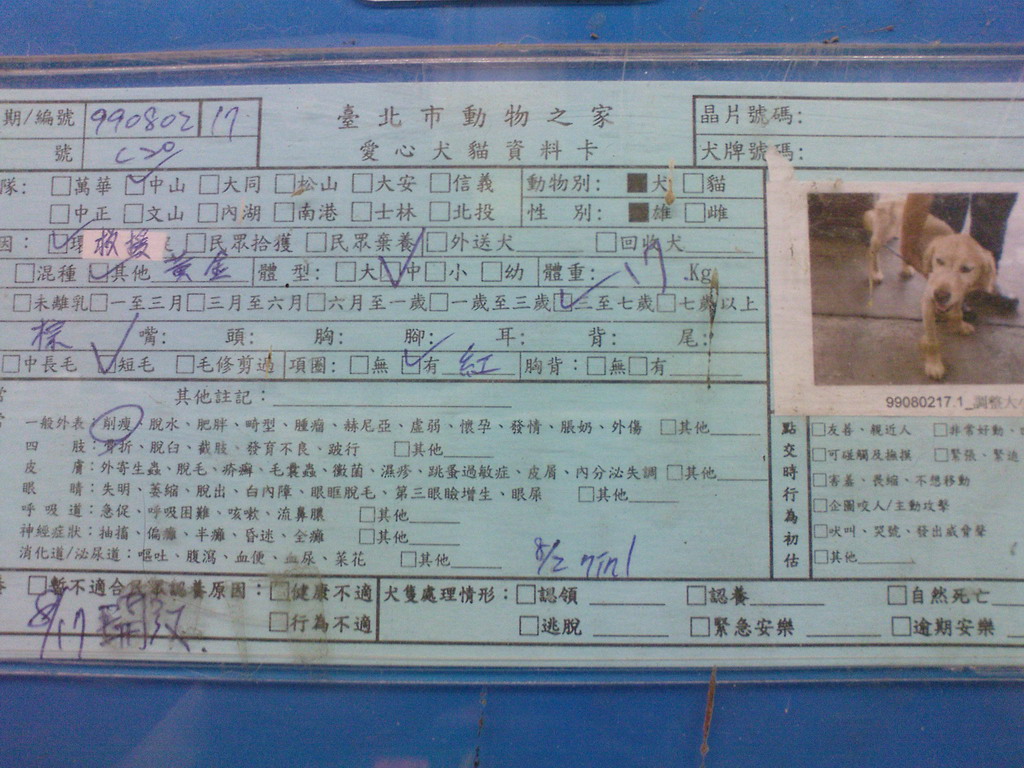 期/編號 990802 17
臺北市動物之家
晶片號碼:
號 C20
愛心犬貓資料卡
犬牌號碼:
隊: □萬華 ☑中山 □大同 □松山 □大安 □信義 動物別: ■犬 □貓
□中正 □文山 □內湖 □南港 □士林 □北投 性 別: ■雄 □雌
因: 救援 □民眾拾獲 □民眾棄養 □外送犬 □回收犬
□混種 ☑其他 黃金 體 型: □大 ☑中 □小 □幼 體重: 17 .Kg
□未離乳 □一至三月 □三月至六月 □六月至一歲 □一歲至三歲 ☑三至七歲 □七歲以上
棕 嘴: 頭: 胸: 腳: 耳: 背: 尾:
□中長毛 ☑短毛 □毛修剪過 項圈: □無 ☑有 紅 胸背: □無 □有
99080217.1_調整大小
其他註記:
一般外表:削瘦、脫水、肥胖、畸型、腫瘤、赫尼亞、虛弱、懷孕、發情、脹奶、外傷 □其他
四 肢:骨折、脫臼、截肢、發育不良、跛行 □其他
皮 膚:外寄生蟲、脫毛、疥癬、毛囊蟲、黴菌、濕疹、跳蚤過敏症、皮屑、內分泌失調 □其他
眼 睛:失明、萎縮、脫出、白內障、眼眶脫毛、第三眼瞼增生、眼屎 □其他
呼吸道:急促、呼吸困難、咳嗽、流鼻膿 □其他
神經症狀:抽搐、偏癱、半癱、昏迷、全癱 □其他
消化道/泌尿道:嘔吐、腹瀉、血便、血尿、菜花 □其他
8/2
點交時行為初估
□友善、親近人 □非常好動、
□可碰觸及撫摸 □緊張、緊迫
□害羞、畏縮、不想移動
□企圖咬人/主動攻擊
□吠叫、哭號、發出威脅聲
□其他
□暫不適合民眾認養原因: □健康不適 犬隻處理情形: □認領 □認養 □自然死亡
8/17 開放
□行為不適 □逃脫 □緊急安樂 □逾期安樂